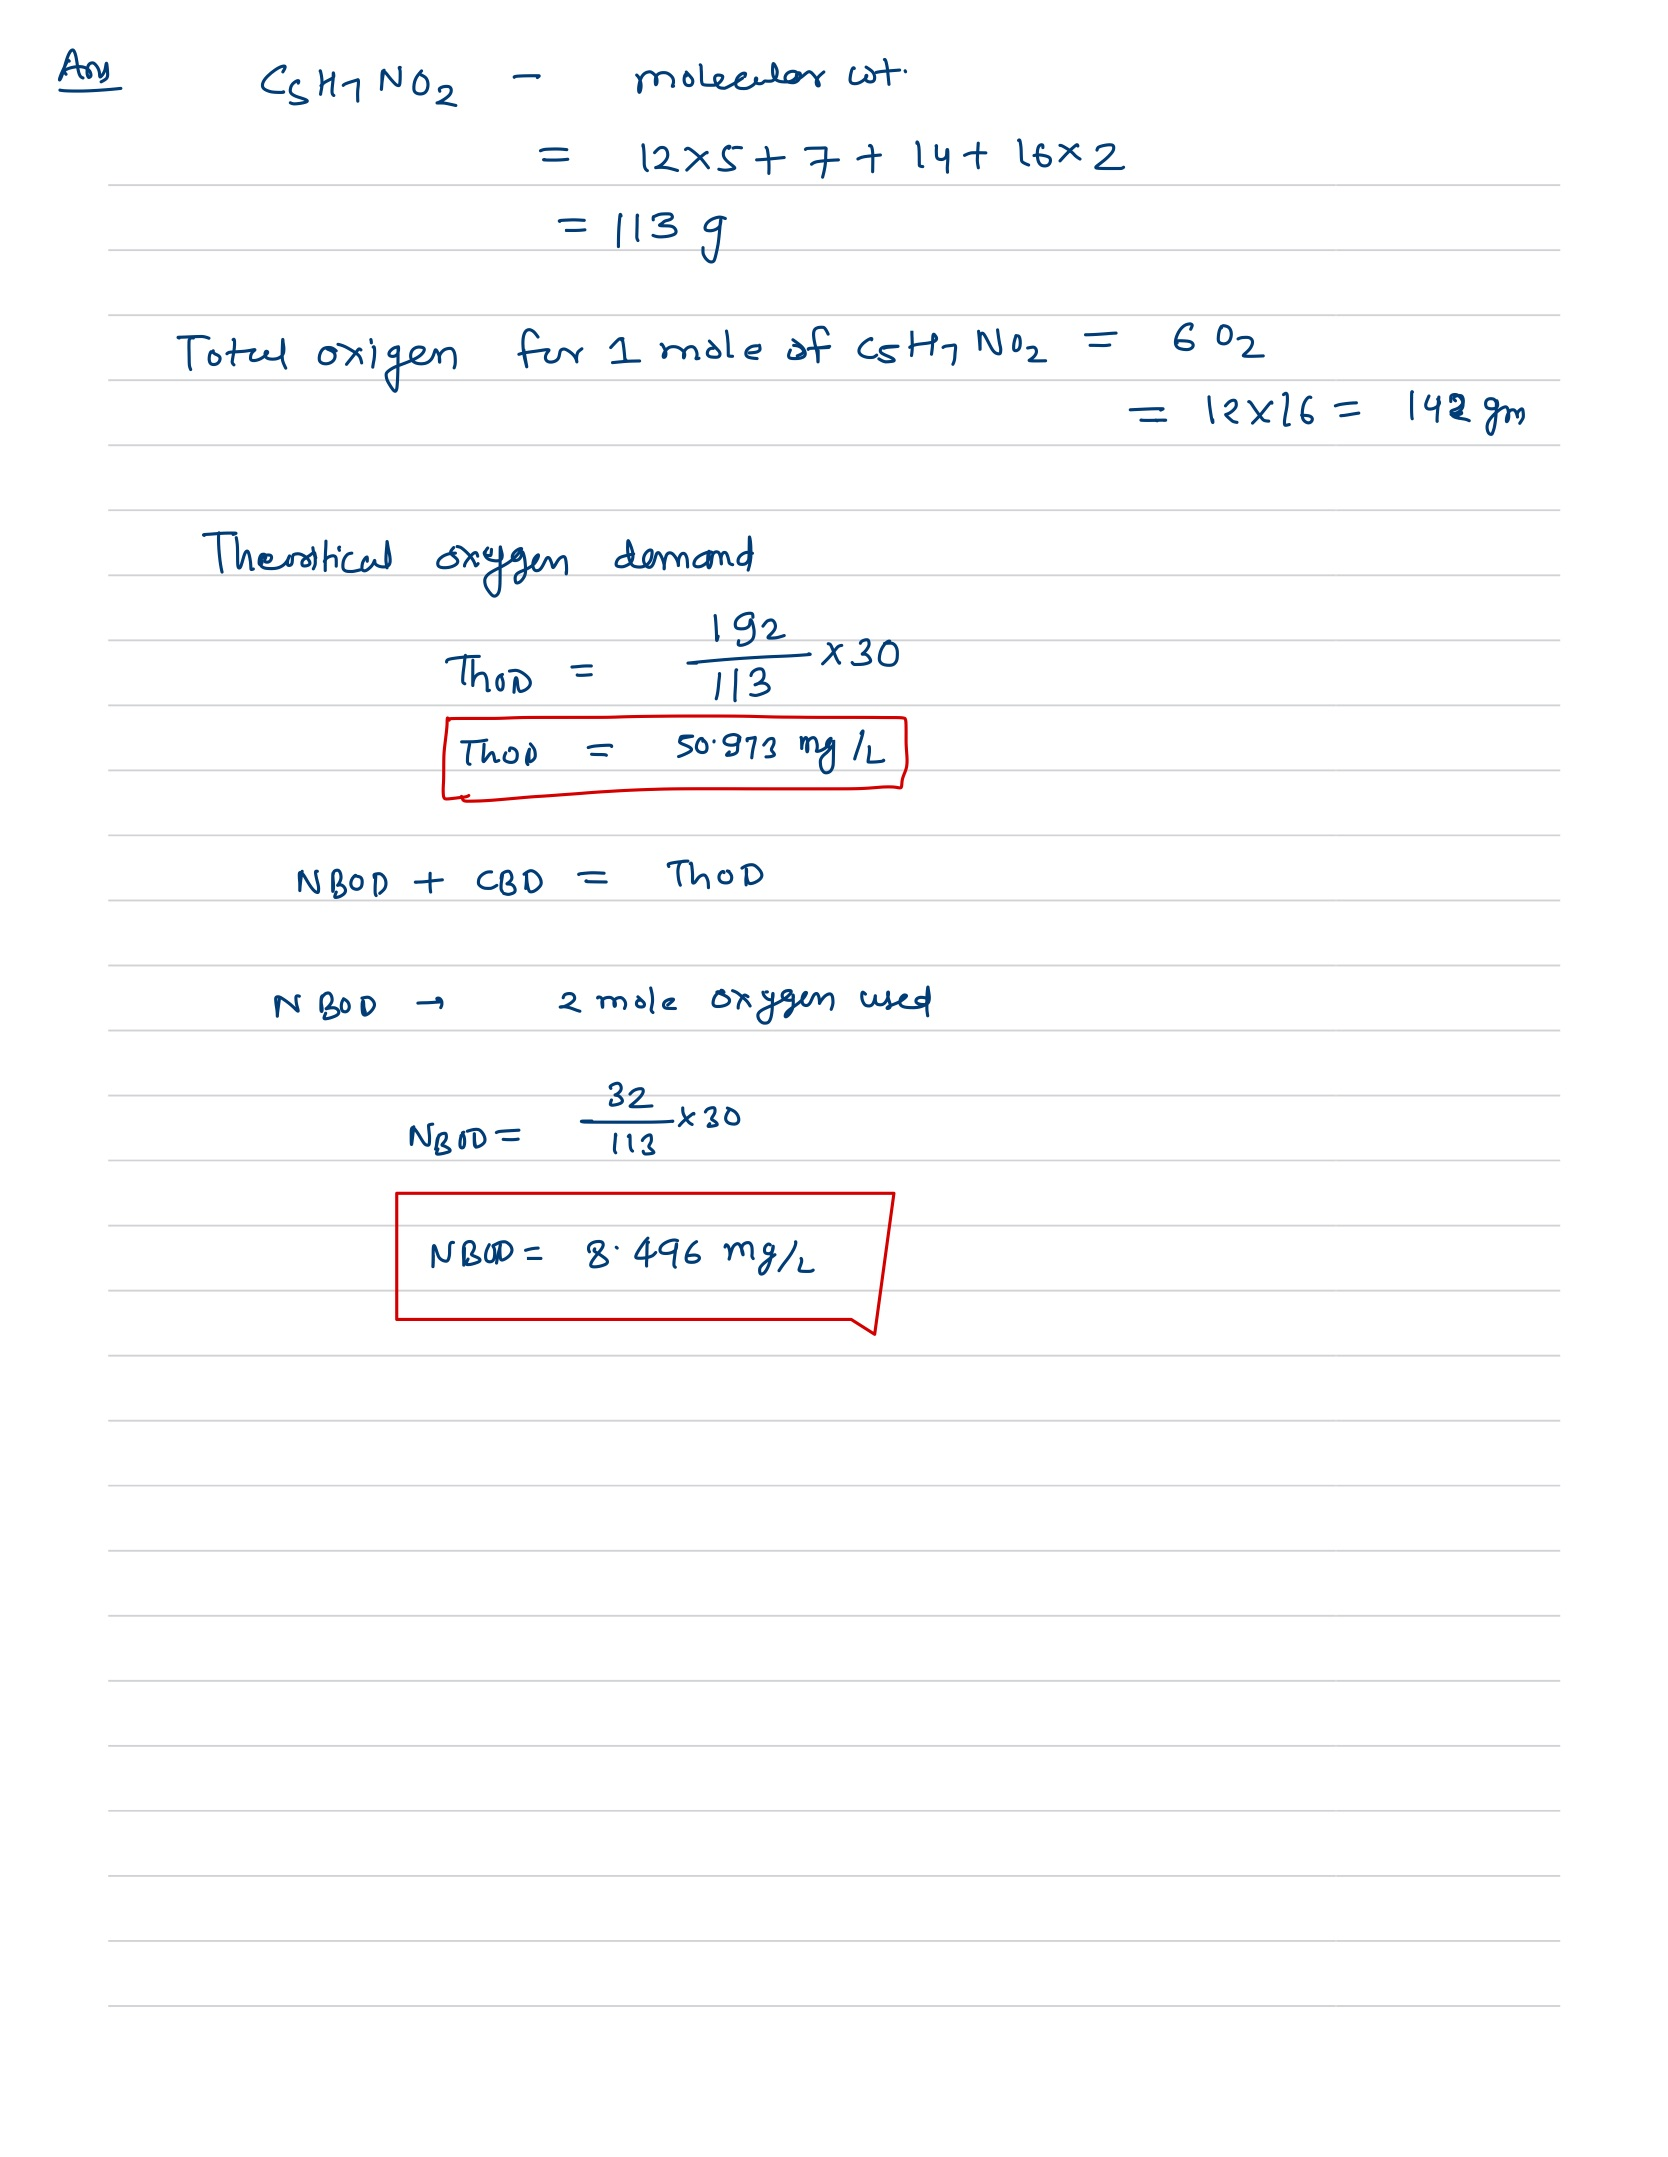 Ans C5H7NO2 - molecular wt.
= 12×5 + 7 + 14 + 16×2
= 113 g
Total oxigen for 1 mole of C5H7NO2 = 6 O2
= 12×16 = 142 gm
Theoritical oxygen demand
ThOD = 192/113 × 30
ThOD = 50.973 mg/L
NBOD + CBD = ThOD
NBOD → 2 mole oxygen used
NBOD = 32/113 × 30
NBOD = 8.496 mg/L